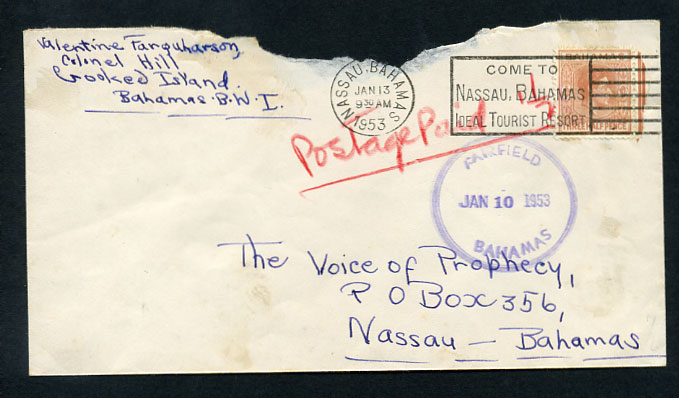 Valentine Farquharson,
Colonel Hill
Crooked Island.
Bahamas. B.W.I.
NASSAU, BAHAMAS
JAN 13
9 30 AM
1953
COME TO
NASSAU, BAHAMAS
IDEAL TOURIST RESORT
BAHAMAS
THREE HALF PENCE
Postage Paid
FAIRFIELD
JAN 10 1953
BAHAMAS
The Voice of Prophecy,
P O Box 356,
Nassau – Bahamas